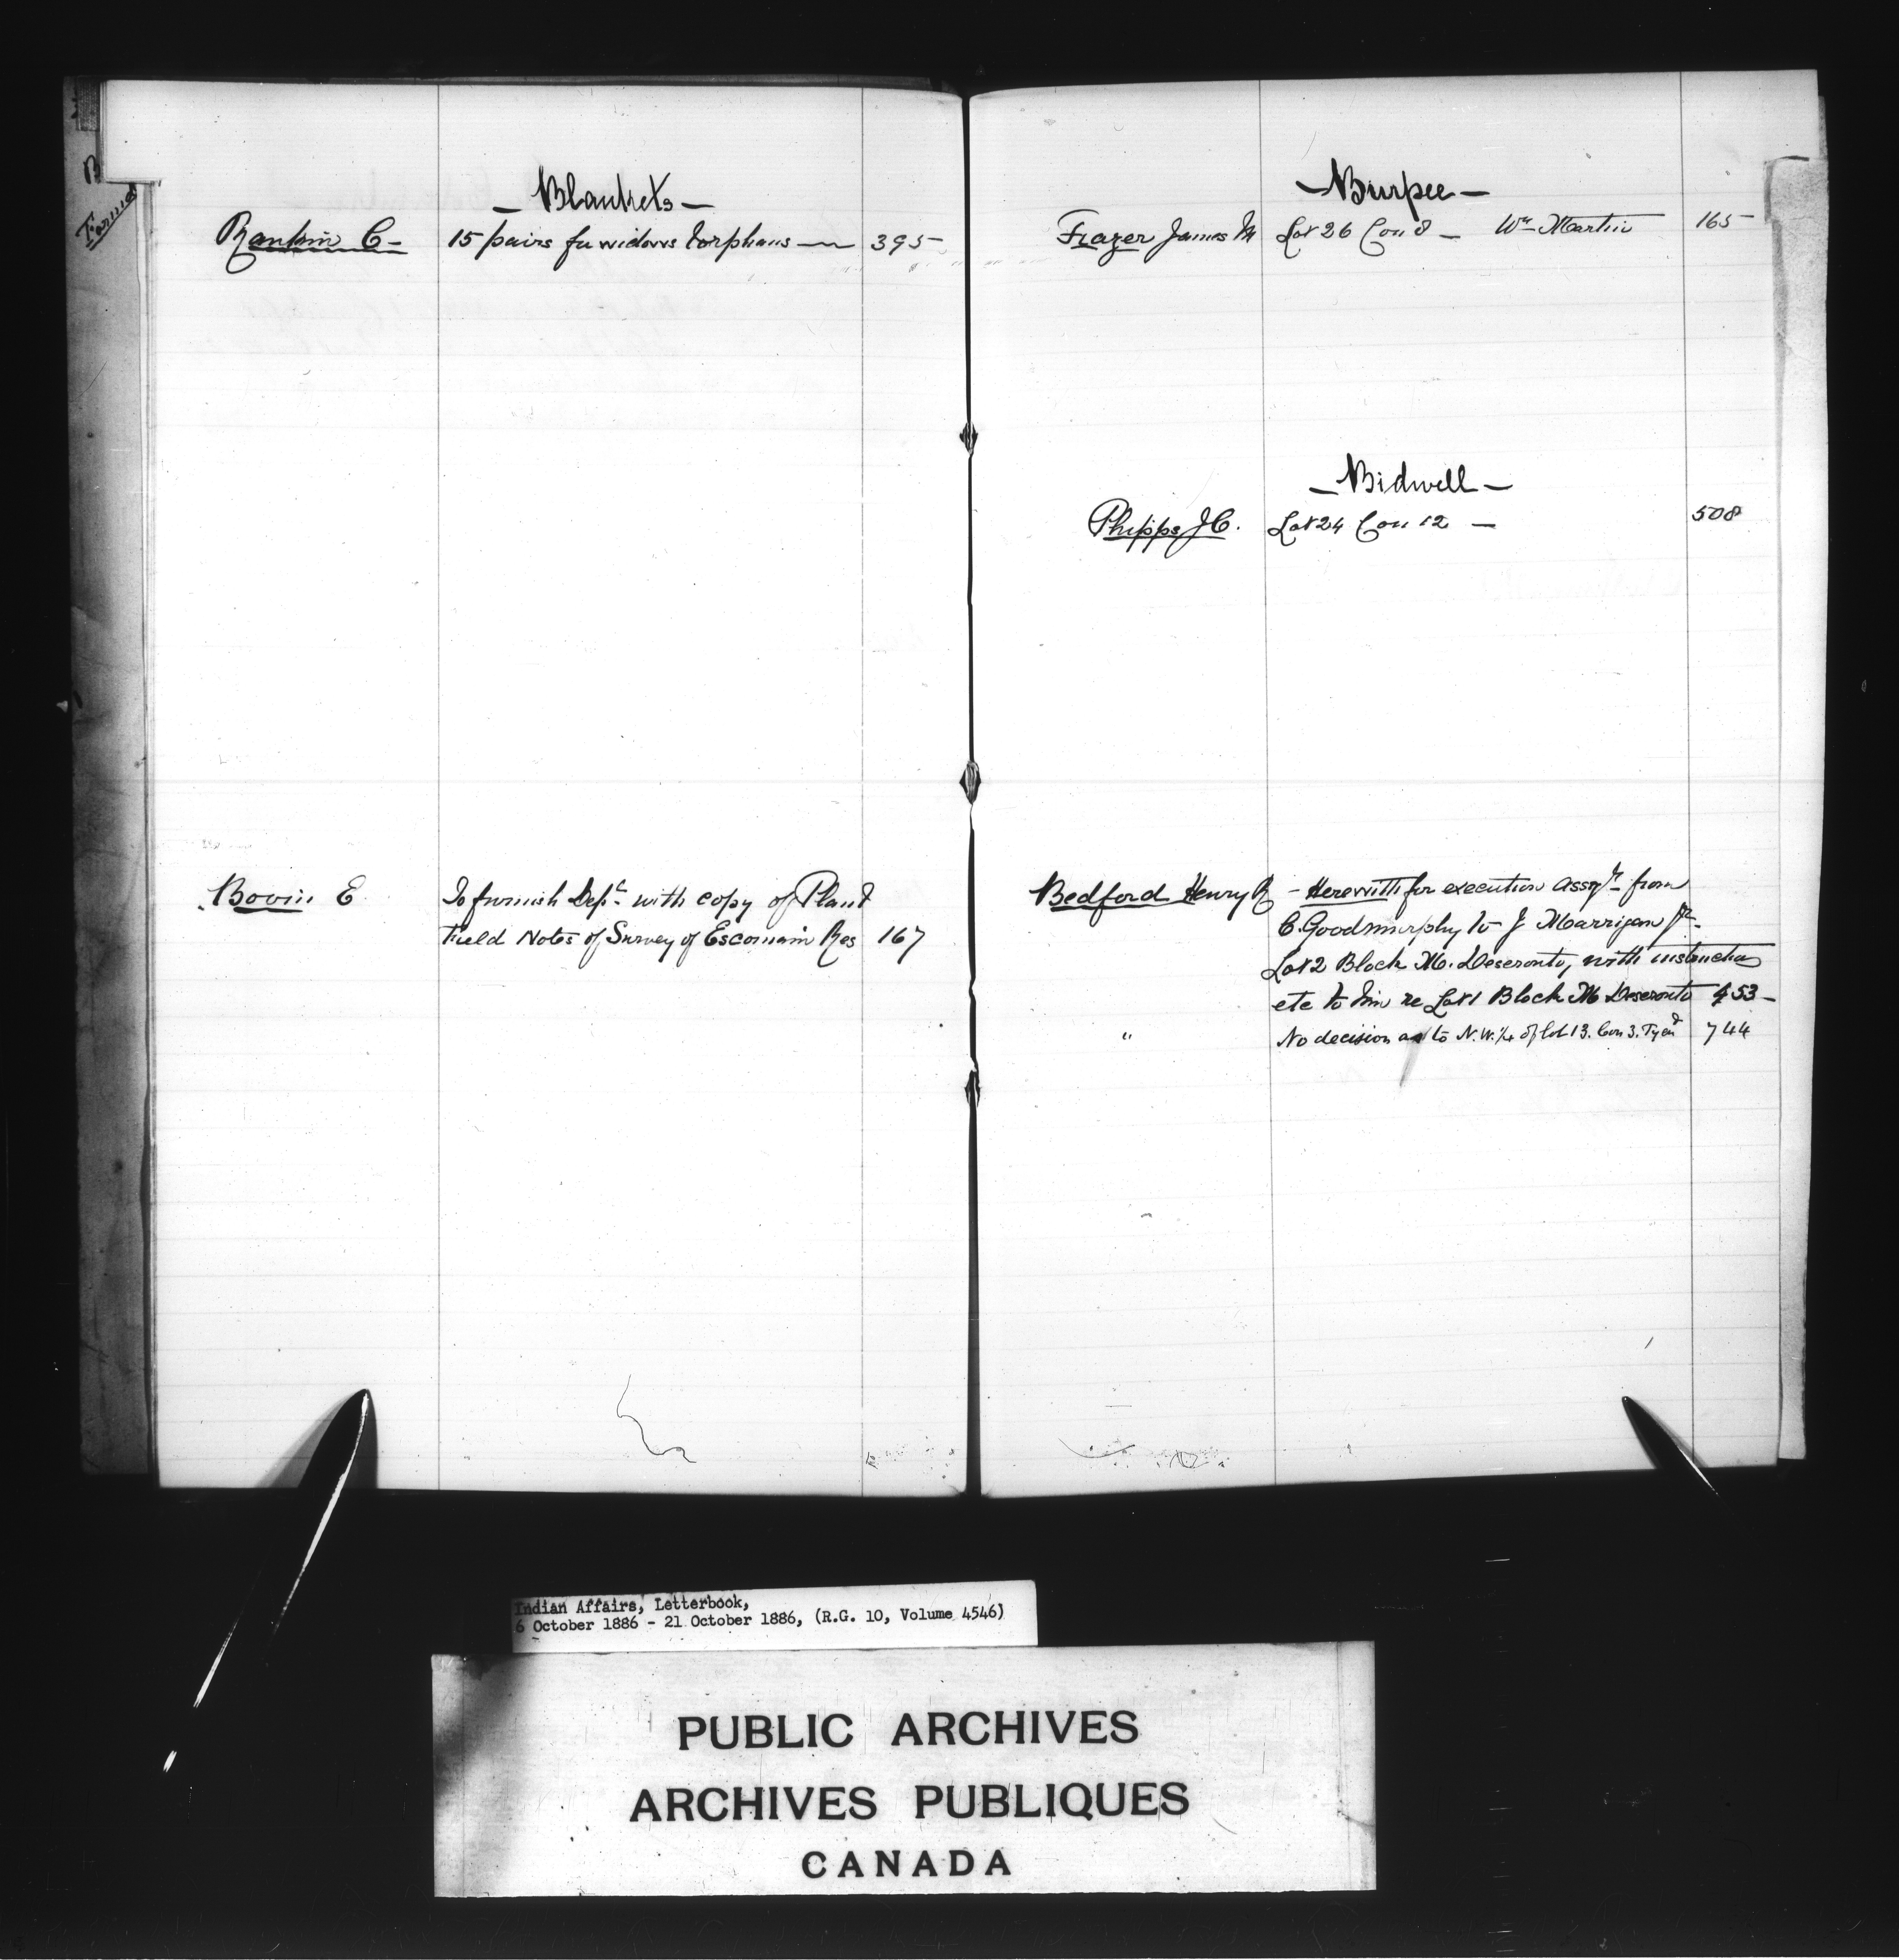 B
Formed
— Blankets —
Rankin C — 15 pairs for widows & orphans — 395
Bovin E To furnish Dept with copy of Plan &
Field Notes of Survey of Escomain Res 167
— Burpee —
Frazer James M Lot 26 Con 8 — Wm Martin 165
— Bidwell —
Phipps J C. Lot 24 Con 12 — 508
Bedford Henry R — Herewith for execution assgt from
C. Goodmurphy to J Marrigan Jr.
Lot 2 Block M. Deseronto, with instruction
etc to him re Lot 1 Block M Deseronto 453 —
" No decision as to N.W. 1/4 of lot 13. Con 3. Tyend 744
Indian Affairs, Letterbook,
6 October 1886 - 21 October 1886, (R.G. 10, Volume 4546)
PUBLIC ARCHIVES
ARCHIVES PUBLIQUES
CANADA